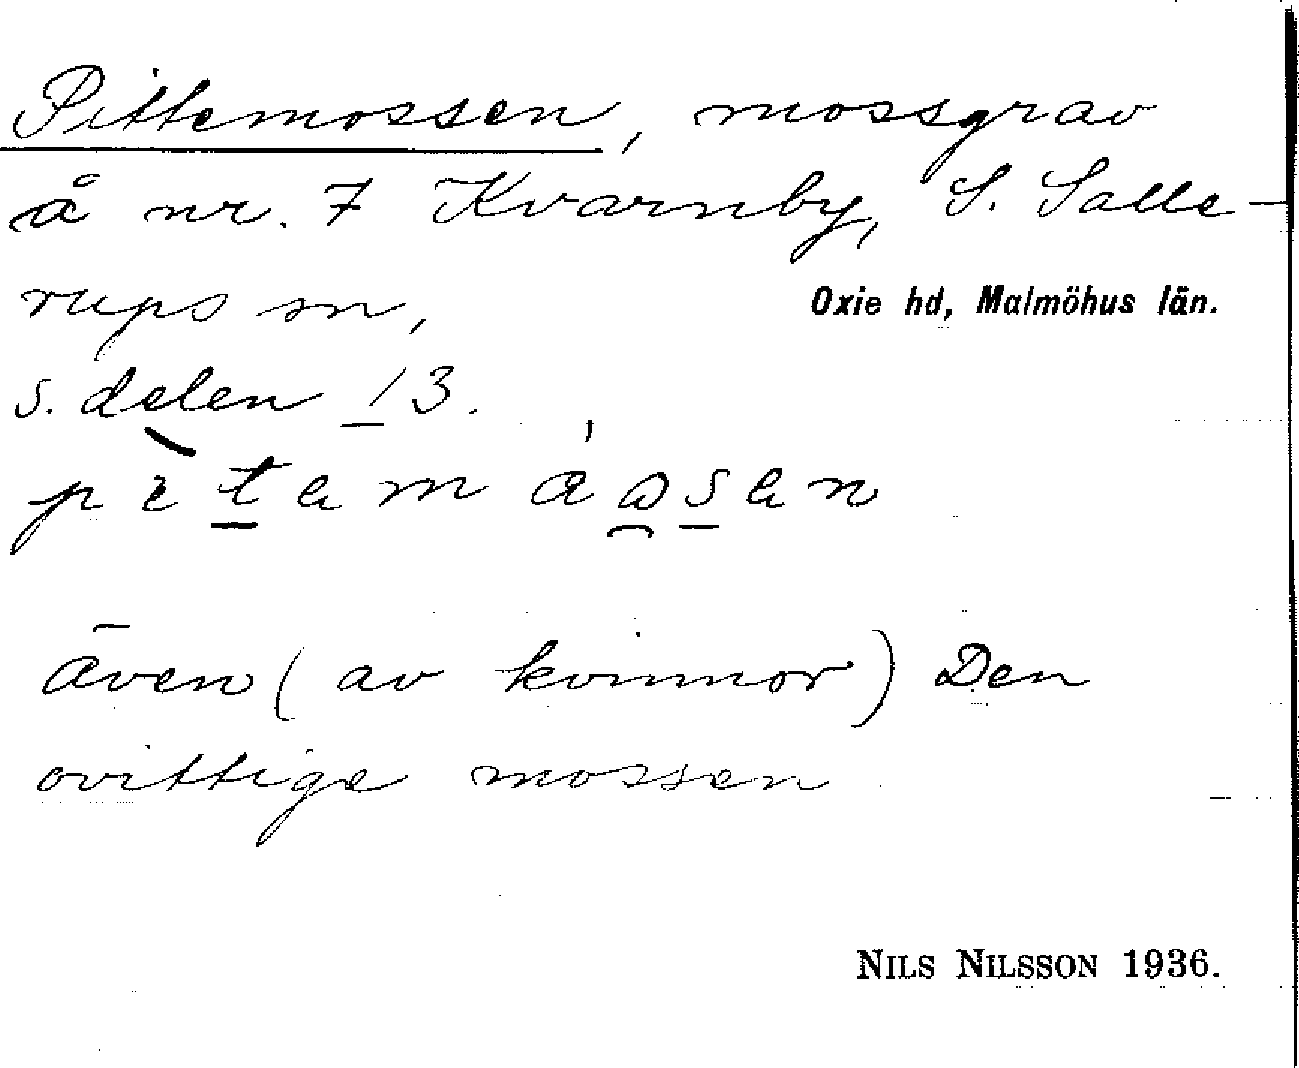 Pittemossen, mossgrav
å nr. 7 Kvarnby, S. Salle-
rups sn,
Oxie hd, Malmöhus län.
s. delen 13.
även (av kvinnor) Den
ovittige mossen
NILS NILSSON 1936.